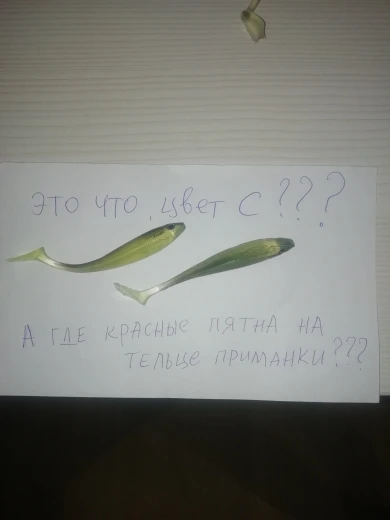 ЭТО ЧТО, ЦВЕТ С???
А ГДЕ КРАСНЫЕ ПЯТНА НА
ТЕЛЬЦЕ ПРИМАНКИ???